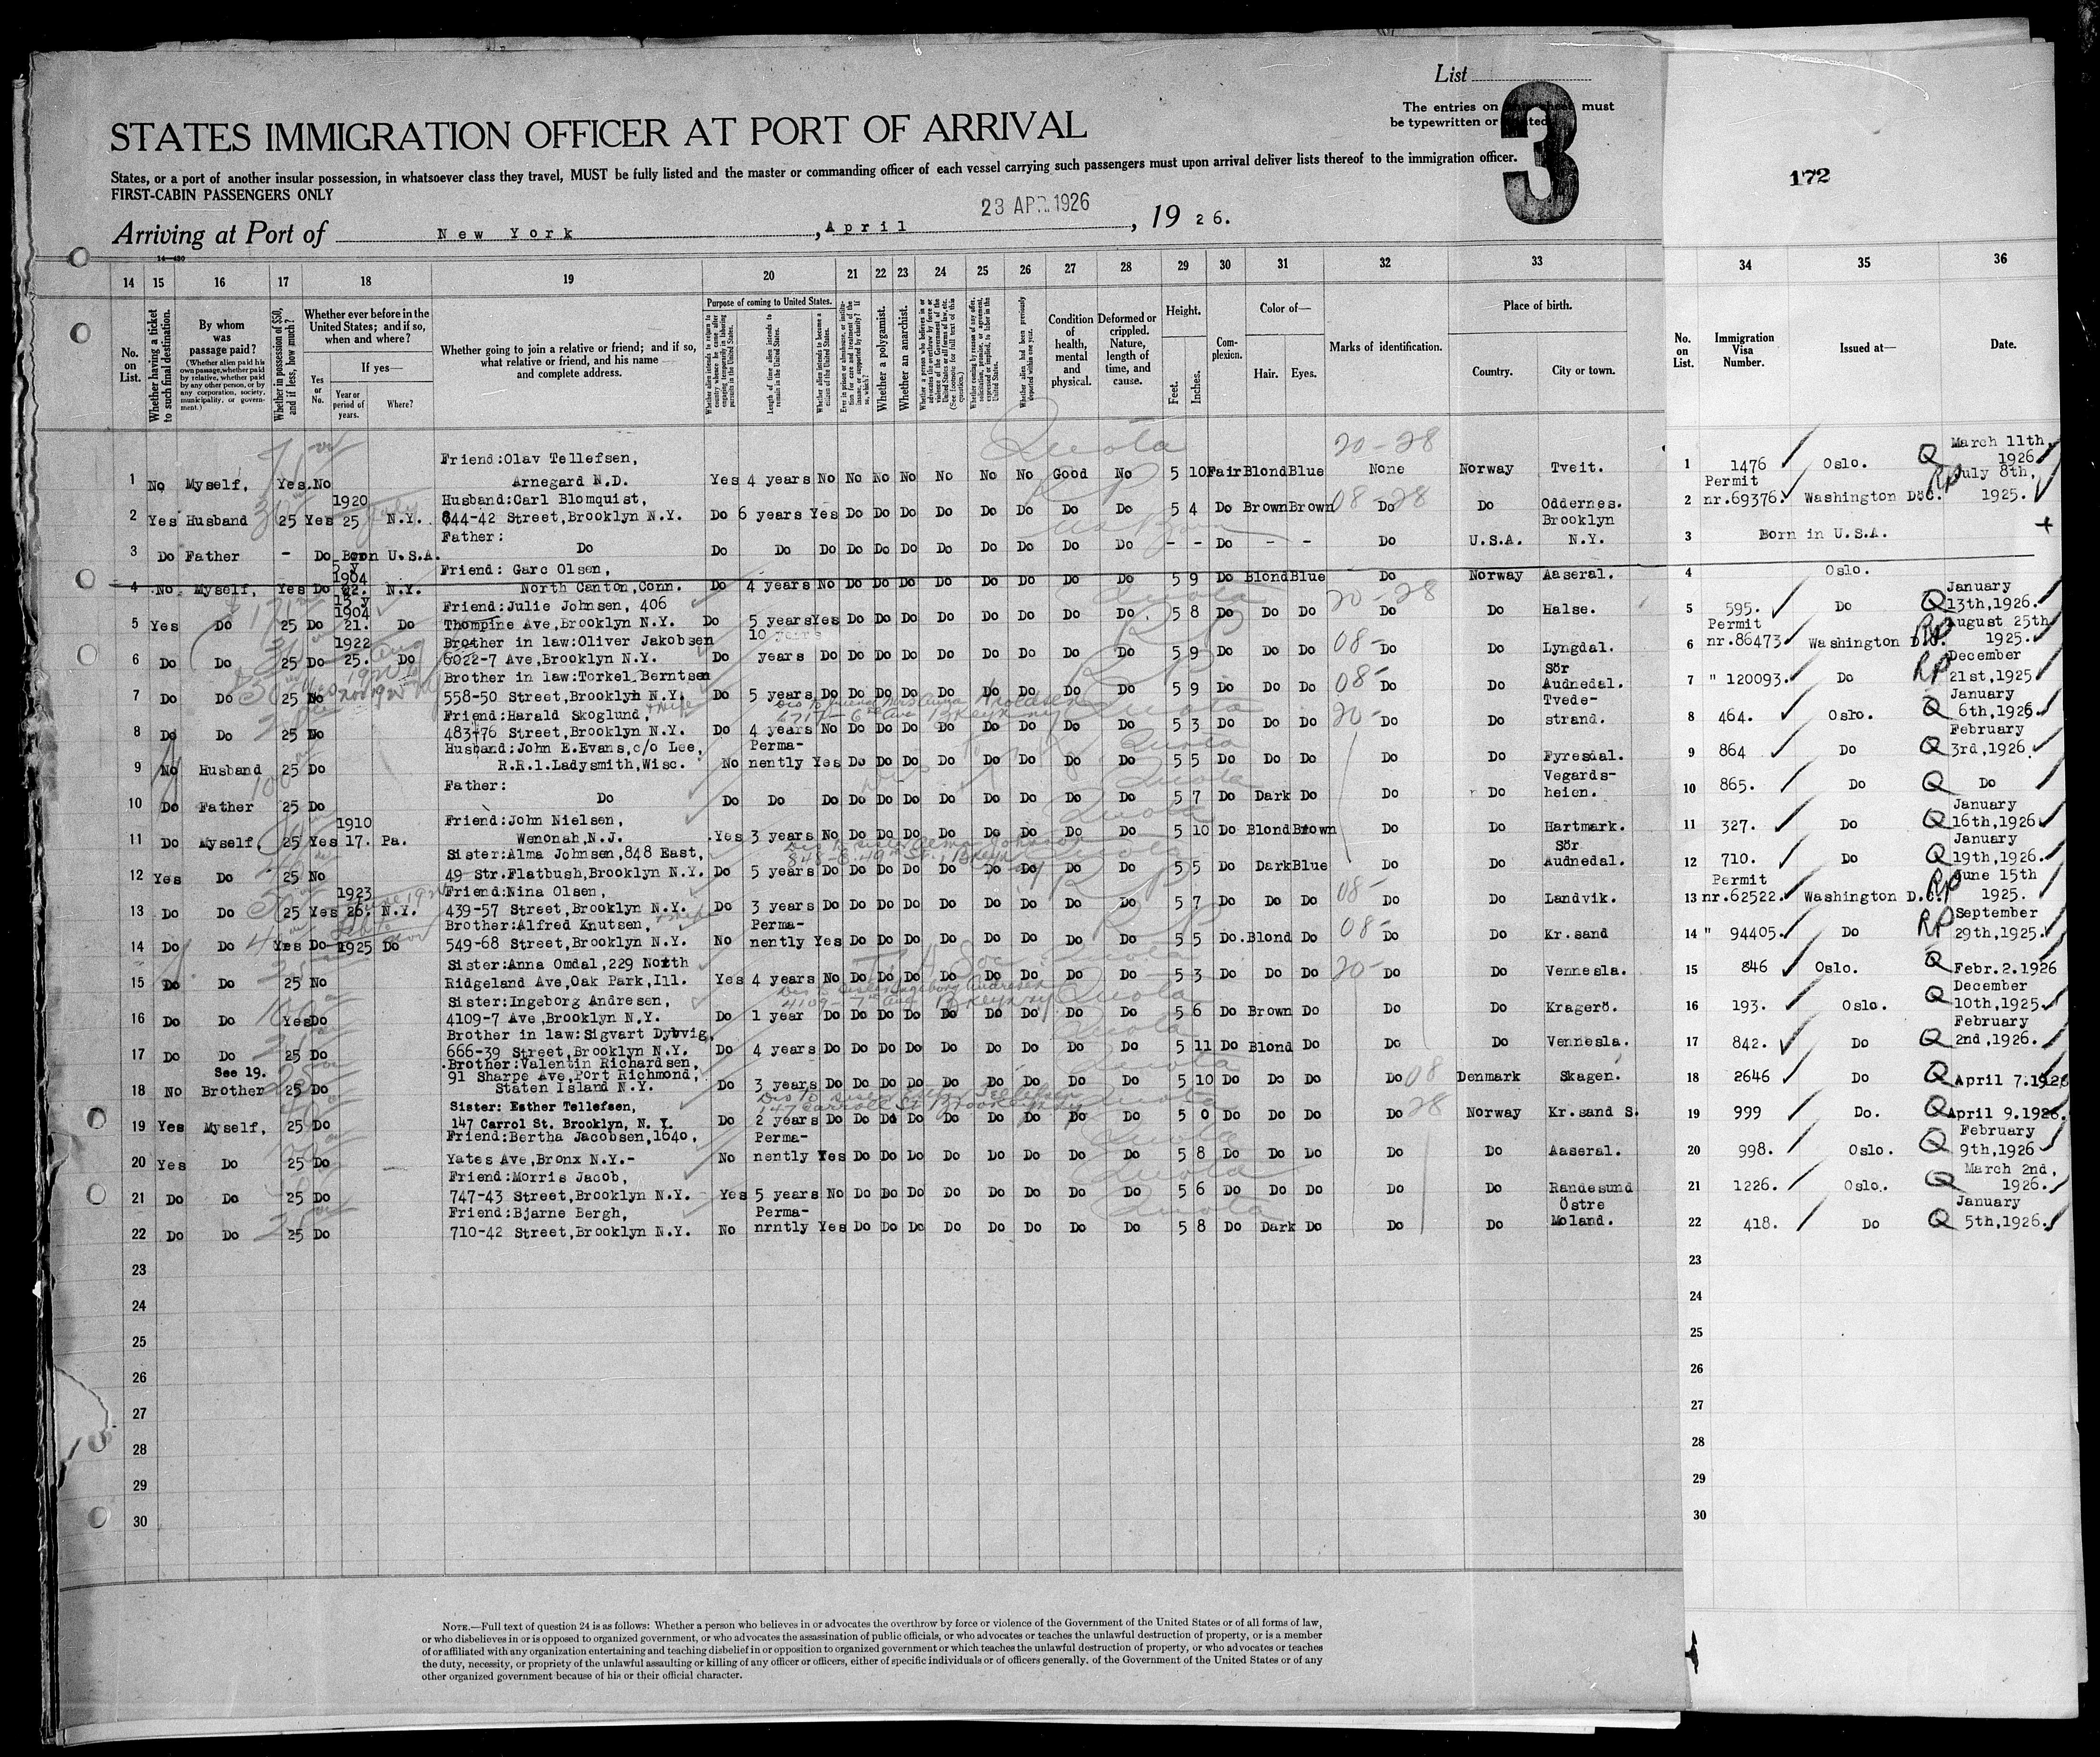 List
The entries on this sheet must
be typewritten or printed
3
STATES IMMIGRATION OFFICER AT PORT OF ARRIVAL
States, or a port of another insular possession, in whatsoever class they travel, MUST be fully listed and the master or commanding officer of each vessel carrying such passengers must upon arrival deliver lists thereof to the immigration officer.
FIRST-CABIN PASSENGERS ONLY
172
23 APR. 1926
Arriving at Port of New York, April, 19 26.
14—430
14 15 16 17 18 19 20 21 22 23 24 25 26 27 28 29 30 31 32 33 34 35 36
No. on List.
Whether having a ticket to such final destination.
By whom was passage paid?
(Whether alien paid his own passage, whether paid by relative, whether paid by any other person, or by any corporation, society, municipality, or government.)
Whether in possession of $50, and if less, how much?
Whether ever before in the United States; and if so, when and where?
Yes or No.
If yes—
Year or period of years.
Where?
Whether going to join a relative or friend; and if so, what relative or friend, and his name and complete address.
Purpose of coming to United States.
Length of time alien intends to remain in the United States.
Whether alien intends to become a citizen of the United States.
Whether a polygamist.
Whether an anarchist.
Condition of health, mental and physical.
Deformed or crippled. Nature, length of time, and cause.
Height.
Feet.
Inches.
Complexion.
Color of—
Hair.
Eyes.
Marks of identification.
Place of birth.
Country.
City or town.
No. on List.
Immigration Visa Number.
Issued at—
Date.
1 No Myself, Yes No Friend:Olav Tellefsen, Arnegard N.D. Yes 4 years No No No No No No No Good No 5 10 Fair Blond Blue None Norway Tveit. 1 1476 Oslo. Q March 11th, 1926
Quota 20-28
2 Yes Husband 25 Yes 1920 25 N.Y. Husband:Carl Blomquist, 844-42 Street,Brooklyn N.Y. Do 6 years Yes Do Do Do Do Do Do Do Do 5 4 Do Brown Brown Do Do Oddernes. 2 Permit nr.69376. Washington D.C. RP July 8th, 1925.
08-28
3 Do Father - Do Born U.S.A. Father: Do Do Do Do Do Do Do Do Do Do Do Do - - Do - - Do U.S.A. Brooklyn N.Y. 3 Born in U.S.A.
US Born
4 No Myself, Yes Do 5 y 1904 22. N.Y. Friend: Garo Olsen, North Canton,Conn. Do 4 years No Do Do Do Do Do Do Do Do 5 9 Do Blond Blue Do Norway Aaseral. 4 Oslo.
5 Yes Do 25 Do 13 y 1904 21. Do Friend:Julie Johnsen, 406 Thompine Ave,Brooklyn N.Y. Do 5 years Yes Do Do Do Do Do Do Do Do 5 8 Do Do Do Do Do Halse. 5 595. Do Q January 13th,1926.
Quota 20-28
6 Do Do 25 Do 1922 25. Do Brother in law:Oliver Jakobsen 6022-7 Ave,Brooklyn N.Y. Do 10 years years Do Do Do Do Do Do Do Do Do 5 9 Do Do Do Do Do Lyngdal. 6 Permit nr.86473 Washington D.C. RP August 25th 1925.
08-
7 Do Do 25 No Brother in law:Torkel Berntsen 558-50 Street,Brooklyn N.Y. Do 5 years Do Do Do Do Do Do Do Do Do 5 9 Do Do Do Do Do Sör Audnedal. 7 " 120093. Do RP December 21st,1925
08-
8 Do Do 25 No Friend:Harald Skoglund, 483-76 Street,Brooklyn N.Y. Do 4 years No Do Do Do Do Do Do Do Do 5 3 Do Do Do Do Do Tvedestrand. 8 464. Oslo. Q January 6th,1926.
Quota 20-
9 No Husband 25 Do Husband:John E.Evans,c/o Lee, R.R.1.Ladysmith,Wisc. No Permanently Yes Do Do Do Do Do Do Do Do 5 5 Do Do Do Do Do Fyresdal. 9 864 Do Q February 3rd,1926
Quota
10 Do Father 25 Do Father: Do Do Do Do Do Do Do Do Do Do Do Do 5 7 Do Dark Do Do Do Vegardsheien. 10 865. Do Q Do
Quota
11 Do Myself. 25 Yes 1910 17. Pa. Friend:John Nielsen, Wenonah,N.J. Yes 3 years No Do Do Do Do Do Do Do Do 5 10 Do Blond Brown Do Do Hartmark. 11 327. Do Q January 16th,1926
Quota
12 Yes Do 25 No Sister:Alma Johnsen,848 East, 49 Str.Flatbush,Brooklyn N.Y. Do 5 years Do Do Do Do Do Do Do Do Do 5 5 Do Dark Blue Do Do Sör Audnedal. 12 710. Do Q January 19th,1926.
13 Do Do 25 Yes 1923 26. N.Y. Friend:Nina Olsen, 439-57 Street,Brooklyn N.Y. Do 3 years Do Do Do Do Do Do Do Do Do 5 7 Do Do Do Do Do Landvik. 13 Permit nr.62522. Washington D.C. RP June 15th 1925.
08-
14 Do Do Yes Do 1925 Do Brother:Alfred Knutsen, 549-68 Street,Brooklyn N.Y. No Permanently Yes Do Do Do Do Do Do Do Do 5 5 Do. Blond Do Do Do Kr.sand 14 " 94405. Do RP September 29th,1925.
08-
15 Do Do 25 No Sister:Anna Omdal,229 North Ridgeland Ave,Oak Park,Ill. Yes 4 years No Do Do Do Do Do Do Do Do 5 3 Do Do Do Do Do Vennesla. 15 846 Oslo. Q Febr.2.1926
Quota 20-
16 Do Do Yes Do Sister:Ingeborg Andresen, 4109-7 Ave,Brooklyn N.Y. Do 1 year Do Do Do Do Do Do Do Do Do 5 6 Do Brown Do Do Do Kragerö. 16 193. Oslo. Q December 10th,1925.
Quota
17 Do Do 25 Do Brother in law:Sigvart Dybvig, 666-39 Street,Brooklyn N.Y. Do 4 years Do Do Do Do Do Do Do Do Do 5 11 Do Blond Do Do Do Vennesla. 17 842. Do Q February 2nd,1926.
Quota
18 No See 19. Brother 25 Do Brother:Valentin Richardsen, 91 Sharpe Ave,Port Richmond, Staten Island N.Y. Do 3 years Do Do Do Do Do Do Do Do Do 5 10 Do Do Do Do Denmark Skagen. 18 2646 Do Q April 7.1926
Quota 08
19 Yes Myself, 25 Do Sister: Esther Tellefsen, 147 Carrol St. Brooklyn, N. Y. Do 2 years Do Do Do Do Do Do Do Do Do 5 0 Do Do Do Do Norway Kr.sand S. 19 999 Do. Q April 9.1926.
Quota 28
20 Yes Do 25 Do Friend:Bertha Jacobsen,1640, Yates Ave,Bronx N.Y.- No Permanently Yes Do Do Do Do Do Do Do Do 5 8 Do Do Do Do Do Aaseral. 20 998. Oslo. Q February 9th,1926
Quota
21 Do Do 25 Do Friend:Morris Jacob, 747-43 Street,Brooklyn N.Y. Yes 5 years No Do Do Do Do Do Do Do Do 5 6 Do Do Do Do Do Randesund 21 1226. Oslo. Q March 2nd, 1926.
Quota
22 Do Do 25 Do Friend:Bjarne Bergh, 710-42 Street,Brooklyn N.Y. No Permanrntly Yes Do Do Do Do Do Do Do Do 5 8 Do Dark Do Do Do Östre Moland. 22 418. Do Q January 5th,1926.
Quota
23 23
24 24
25 25
26 26
27 27
28 28
29 29
30 30
NOTE.—Full text of question 24 is as follows: Whether a person who believes in or advocates the overthrow by force or violence of the Government of the United States or of all forms of law,
or who disbelieves in or is opposed to organized government, or who advocates the assassination of public officials, or who advocates or teaches the unlawful destruction of property, or is a member
of or affiliated with any organization entertaining and teaching disbelief in or opposition to organized government or which teaches the unlawful destruction of property, or who advocates or teaches
the duty, necessity, or propriety of the unlawful assaulting or killing of any officer or officers, either of specific individuals or of officers generally. of the Government of the United States or of any
other organized government because of his or their official character.